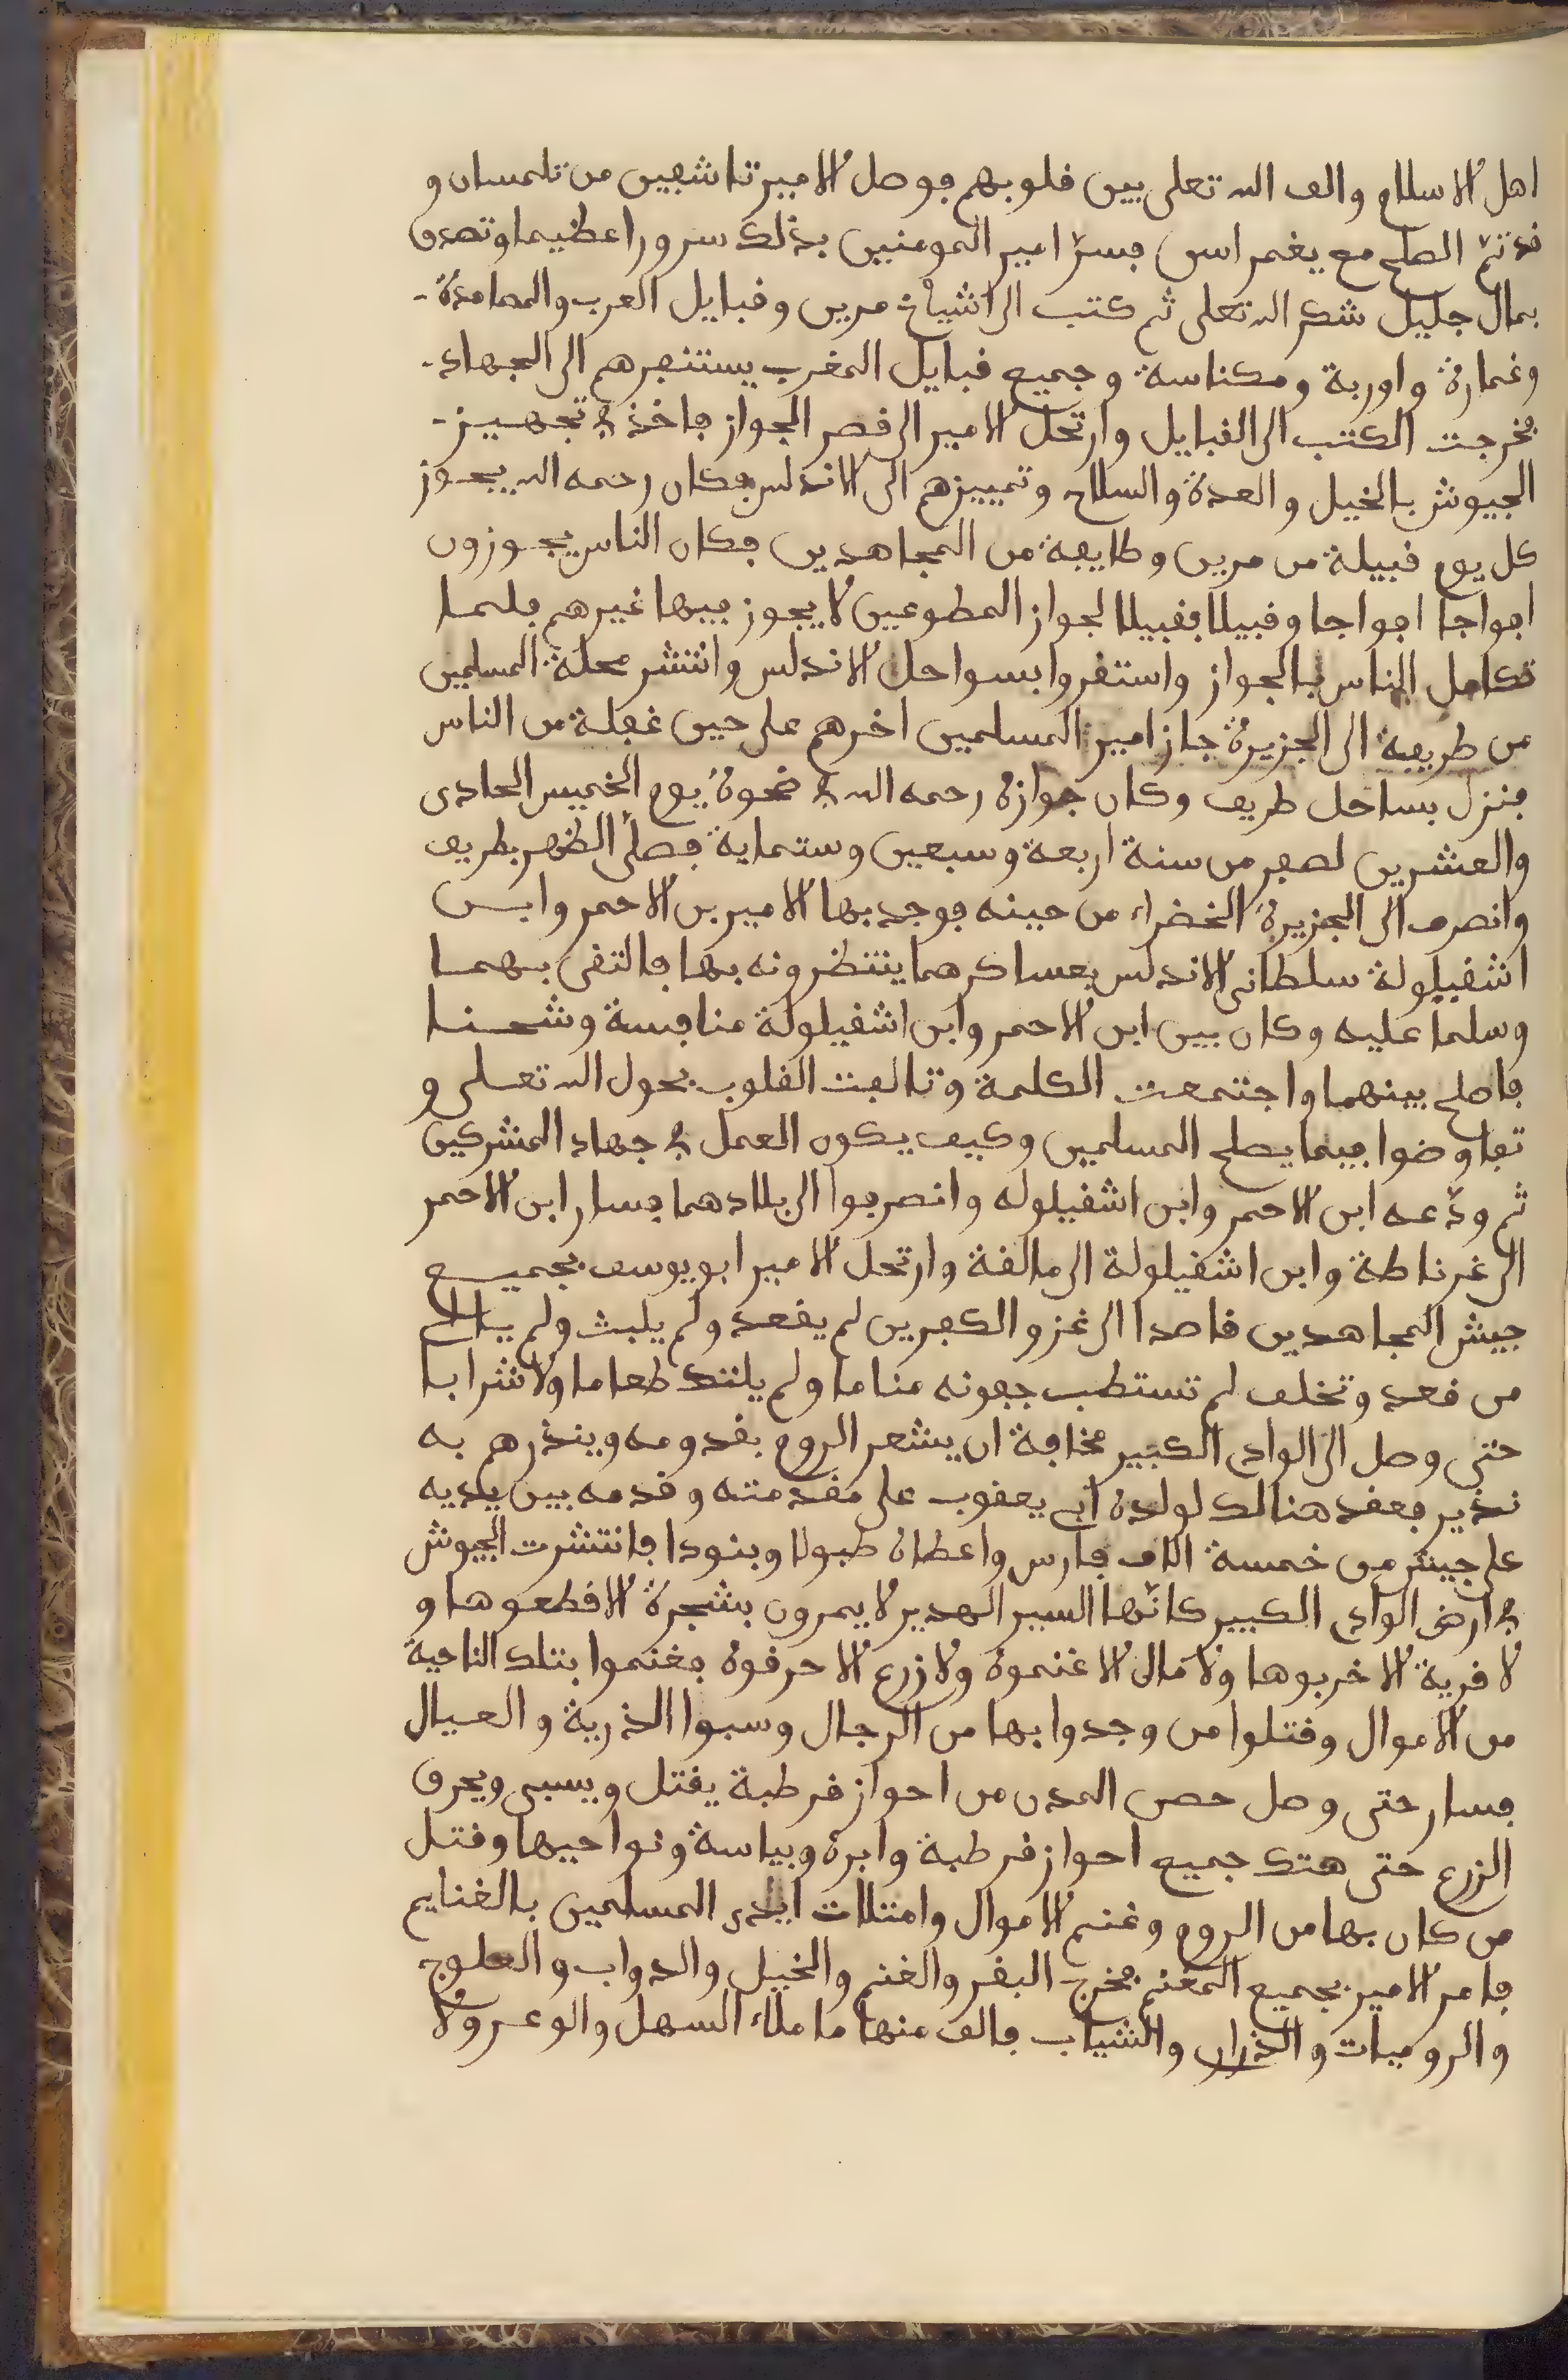 اهل الاسلام والف الله تعلى بين قلوبهم فوصل الامير تاشفين من تلمسان و
قد تمّ الصلح مع يغمراسن فسرّ امير المومنين بذلك سرورا عظيما وتصدق
بمال جليل شكر الله تعلى ثم كتب الى اشياخ مرين وقبايل العرب والمصامدة
وغمارة واوربة ومكناسة وجميع قبايل المغرب يستنفرهم الى الجهاد
فخرجت الكتب الى القبايل وارتحل الامير الى قصر الجواز فاخذ في تجهيز
الجيوش بالخيل والعدة والسلاح وتمييزهم الى الاندلس فكان رحمه الله يجوز
كل يوم قبيلة من مرين وطايفة من المجاهدين فكان الناس يجوزون
افواجا افواجا وقبيلا فقبيلا لجواز المطوعين لا يجوز فيها غيرهم فلما
تكامل الناس بالجواز واستقروا بسواحل الاندلس وانتشر محلة المسلمين
من طريفة الى الجزيرة جاز امير المسلمين اخرهم على حين غفلة من الناس
فنزل بساحل طريف وكان جوازه رحمه الله في ضحوة يوم الخميس الحادى
والعشرين لصفر من سنة اربعة وسبعين وستماية فصلّى الظهر بطريف
وانصرف الى الجزيرة الخضراء من حينه فوجد بها الامير بن الاحمر وابن
اشقيلولة سلطانى الاندلس بعساكرهما ينتظرونه بها فالتقى بهما
وسلما عليه وكان بين ابن الاحمر وابن اشقيلولة منافسة وشحنا
فاصلح بينهما واجتمعت الكلمة وتالفت القلوب بحول الله تعلى و
تفاوضوا فيما يصلح المسلمين وكيف يكون العمل في جهاد المشركين
ثم ودّعه ابن الاحمر وابن اشقيلوله وانصرفوا الى بلادهما فسار ابن الاحمر
الى غرناطة وابن اشقيلولة الى مالقة وارتحل الامير ابو يوسف بجميع
جيش المجاهدين قاصدا الى غزو الكفرين لم يقعد ولم يلبث ولم
من قعد وتخلف لم تستطب جفونه مناما ولم يلتذ طعاما ولا شرابا
حتى وصل الى الوادى الكبير مخافة ان يشعر الروم بقدومه وينذرهم به
نذير فعقد هنالك لولده ابي يعقوب على مقدمته وقدمه بين يديه
على جيش من خمسة الاف فارس واعطاه طبولا وبنودا فانتشرت الجيوش
في ارض الوادى الكبير كانّها السير الهدير لا يمرون بشجرة الا قطعوها و
لا قرية الا خربوها ولا مال الا غنموه ولا زرع الا حرقوه فغنموا بتلك الناحية
من الاموال وقتلوا من وجدوا بها من الرجال وسبوا الذرية والعيال
فسار حتى وصل حصن المدن من احواز قرطبة يقتل ويسبى ويحرق
الزرع حتى هتك جميع احواز قرطبة وابرة وبياسة ونواحيها وقتل
من كان بها من الروم وغنم الاموال وامتلات ايدى المسلمين بالغنايم
فامر الامير بجميع المغنم فخرج البقر والغنم والخيل والدواب والعلوج
والروميات والذرار والشياب فالف منها ما ملاء السهل والوعر ولا